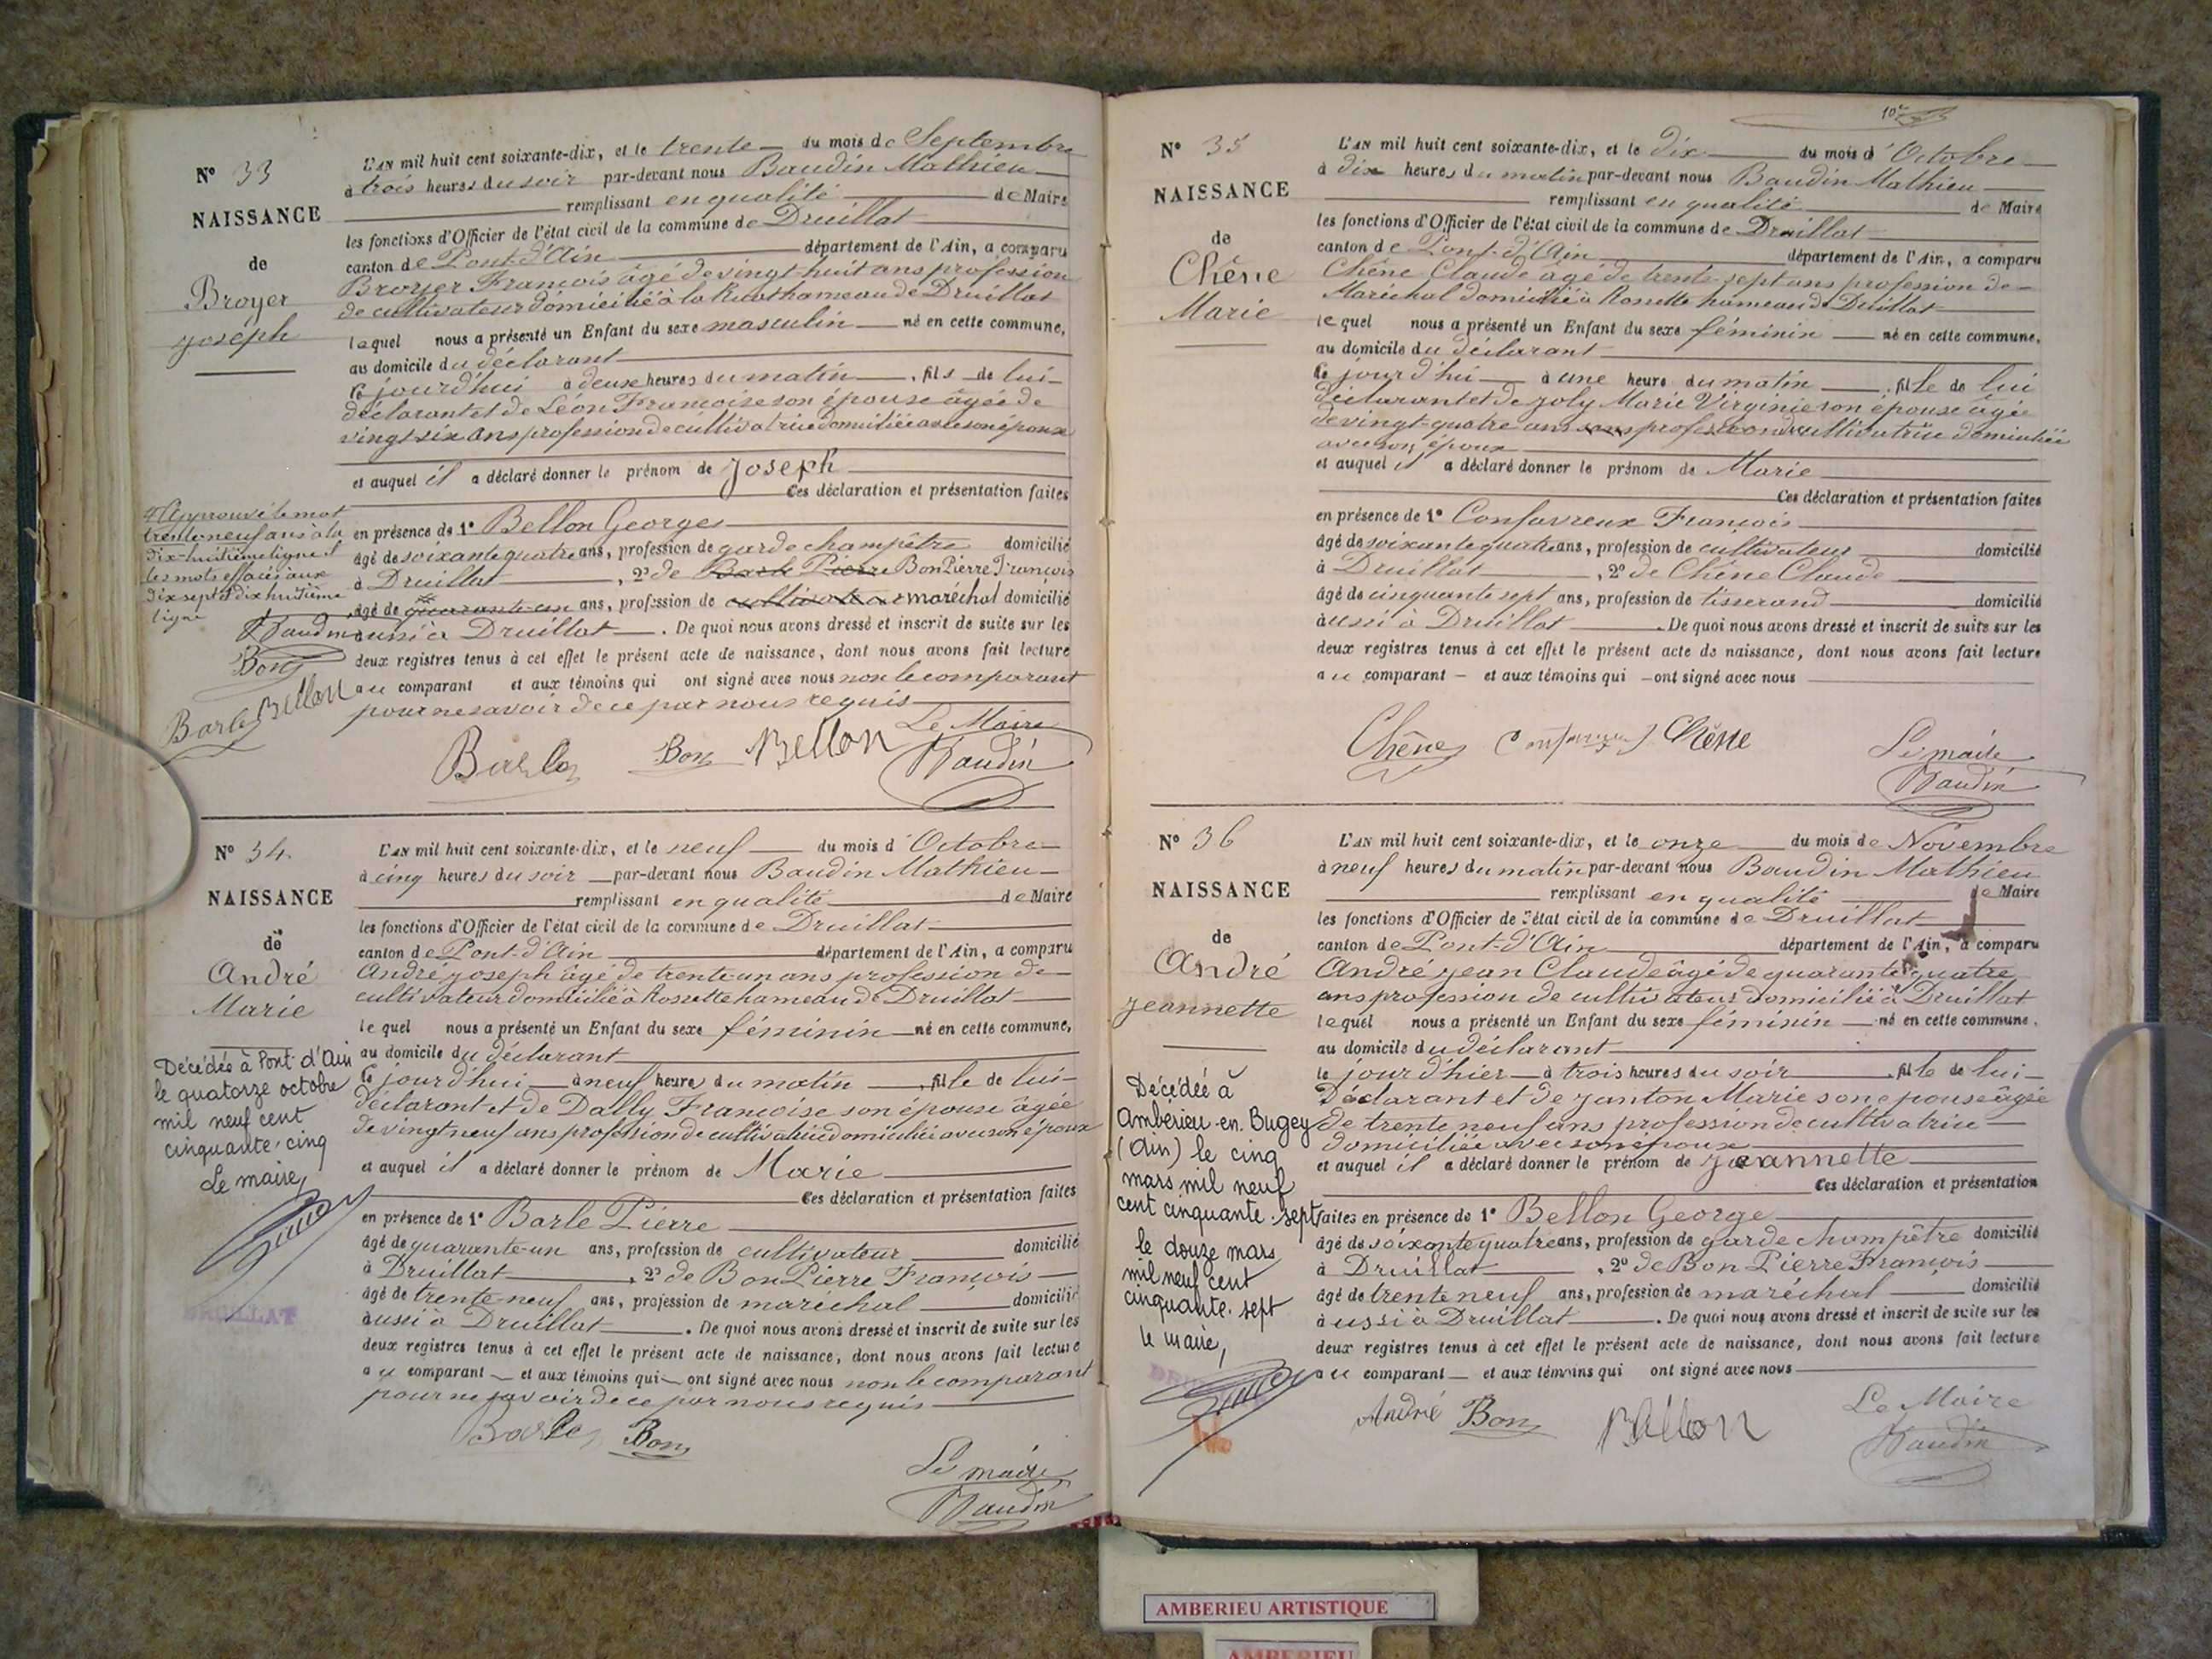 N° 33
NAISSANCE
de
Broyer
Joseph
L'AN mil huit cent soixante-dix, et le trente du mois de Septembre
à trois heures du soir par-devant nous Baudin Mathieu
remplissant en qualité de Maire
les fonctions d'Officier de l'état civil de la commune de Druillat
canton de Pont-d'Ain département de l'Ain, a comparu
Broyer François âgé de vingt-huit ans profession
de cultivateur domicilié à la hameau de Druillat
lequel nous a présenté un Enfant du sexe masculin né en cette commune,
au domicile du déclarant
ce jourd'hui à deux heures du matin, fils de lui
déclarant et de Léon Françoise son épouse âgée de
vingt six ans profession de cultivatrice domiciliée avec son époux
et auquel il a déclaré donner le prénom de Joseph
Ces déclaration et présentation faites
en présence de 1° Bellon Georges
âgé de soixante quatre ans, profession de garde champêtre domicilié
à Druillat, 2° de Barle Pierre Bon Pierre François
âgé de quarante-un ans, profession de cultivateur maréchal domicilié
aussi à Druillat. De quoi nous avons dressé et inscrit de suite sur les
deux registres tenus à cet effet le présent acte de naissance, dont nous avons fait lecture
au comparant et aux témoins qui ont signé avec nous non le comparant
pour ne savoir de ce par nous requis
Approuvé le mot
trente neuf ans à la
dix-huitième ligne et
les mots effacés aux
dix sept et dix huitième
ligne
Baudin
Bon
Barle Bellon
Le Maire
Barle Bon Bellon Baudin
N° 34
NAISSANCE
de
André
Marie
L'AN mil huit cent soixante-dix, et le neuf du mois d'Octobre
à cinq heures du soir par-devant nous Baudin Mathieu
remplissant en qualité de Maire
les fonctions d'Officier de l'état civil de la commune de Druillat
canton de Pont-d'Ain département de l'Ain, a comparu
André Joseph âgé de trente un ans profession de
cultivateur domicilié à Rossette hameau de Druillat
lequel nous a présenté un Enfant du sexe féminin né en cette commune,
au domicile du déclarant
ce jourd'hui à neuf heures du matin, fille de lui
déclarant et de Dally Françoise son épouse âgée
de vingt neuf ans profession de cultivatrice domiciliée avec son époux
et auquel il a déclaré donner le prénom de Marie
Ces déclaration et présentation faites
en présence de 1° Barle Pierre
âgé de quarante-un ans, profession de cultivateur domicilié
à Druillat, 2° de Bon Pierre François
âgé de trente-neuf ans, profession de maréchal domicilié
aussi à Druillat. De quoi nous avons dressé et inscrit de suite sur les
deux registres tenus à cet effet le présent acte de naissance, dont nous avons fait lecture
au comparant et aux témoins qui ont signé avec nous non le comparant
pour ne savoir de ce par nous requis
Décédée à Pont-d'Ain
le quatorze octobre
mil neuf cent
cinquante-cinq
Le maire,
DRUILLAT
Barle Bon
Le maire
Baudin
10e
N° 35
NAISSANCE
de
Chêne
Marie
L'AN mil huit cent soixante-dix, et le dix du mois d'Octobre
à dix heures du matin par-devant nous Baudin Mathieu
remplissant en qualité de Maire
les fonctions d'Officier de l'état civil de la commune de Druillat
canton de Pont-d'Ain département de l'Ain, a comparu
Chêne Claude âgé de trente-sept ans profession de
Maréchal domicilié à Rossette hameau de Druillat
lequel nous a présenté un Enfant du sexe féminin né en cette commune,
au domicile du déclarant
ce jourd'hui à une heure du matin, fille de lui
déclarant et de Joly Marie Virginie son épouse âgée
de vingt-quatre ans sans profession de cultivatrice domiciliée
avec son époux
et auquel il a déclaré donner le prénom de Marie
Ces déclaration et présentation faites
en présence de 1° Confavreux François
âgé de soixante quatre ans, profession de cultivateur domicilié
à Druillat, 2° de Chêne Claude
âgé de cinquante sept ans, profession de tisserand domicilié
aussi à Druillat. De quoi nous avons dressé et inscrit de suite sur les
deux registres tenus à cet effet le présent acte de naissance, dont nous avons fait lecture
au comparant et aux témoins qui ont signé avec nous
Chêne Confavreux Chêne
Le maire
Baudin
N° 36
NAISSANCE
de
André
Jeannette
L'AN mil huit cent soixante-dix, et le onze du mois de Novembre
à neuf heures du matin par-devant nous Baudin Mathieu
remplissant en qualité de Maire
les fonctions d'Officier de l'état civil de la commune de Druillat
canton de Pont-d'Ain département de l'Ain, a comparu
André Jean Claude âgé de quarante quatre
ans profession de cultivateur domicilié à Druillat
lequel nous a présenté un Enfant du sexe féminin né en cette commune,
au domicile du déclarant
le jour d'hier à trois heures du soir, fille de lui
Déclarant et de Janton Marie son épouse âgée
de trente neuf ans profession de cultivatrice
domiciliée avec son époux
et auquel il a déclaré donner le prénom de Jeannette
Ces déclaration et présentation
faites en présence de 1° Bellon George
âgé de soixante quatre ans, profession de garde champêtre domicilié
à Druillat, 2° de Bon Pierre François
âgé de trente neuf ans, profession de maréchal domicilié
aussi à Druillat. De quoi nous avons dressé et inscrit de suite sur les
deux registres tenus à cet effet le présent acte de naissance, dont nous avons fait lecture
au comparant et aux témoins qui ont signé avec nous
Décédée à
Ambérieu-en-Bugey
(Ain) le cinq
mars mil neuf
cent cinquante-sept
le douze mars
mil neuf cent
cinquante-sept
le maire,
André Bon Bellon
Le Maire
Baudin
AMBERIEU ARTISTIQUE
AMBERIEU